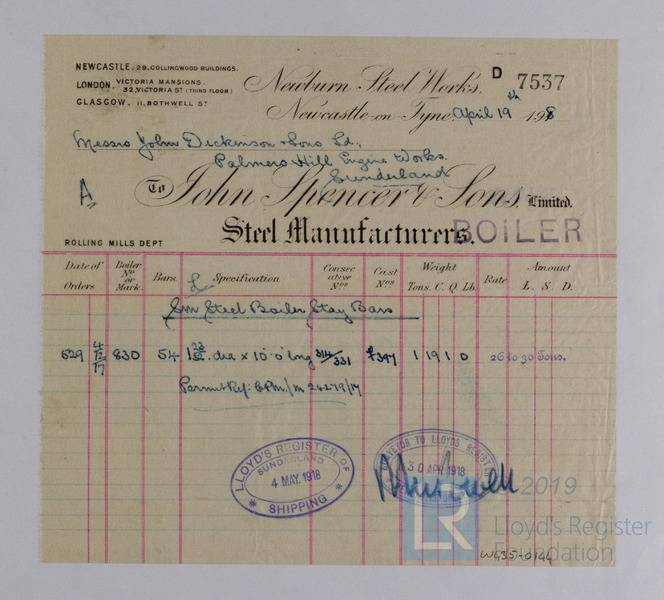 NEWCASTLE, 29, COLLINGWOOD BUILDINGS.
LONDON, VICTORIA MANSIONS. 32, VICTORIA ST (THIRD FLOOR)
GLASGOW, 11, BOTHWELL ST
Newburn Steel Works. D 7537
Newcastle-on-Tyne, April 19th 1918
Messrs John Dickinson & Sons Ld,
Palmers Hill Engine Works.
Sunderland
A
To John Spencer & Sons, Limited.
Steel Manufacturers.
BOILER
ROLLING MILLS DEPT
Date of Orders Boiler No or Mark. Bars. Specification Consecutive Nos Cast Nos Weight Tons. C. Q. Lb. Rate Amount L. S. D.
Sm Steel Boiler Stay Bars
529 4/12/17 830 54 1 23/32 dia x 10'0" lng 314/331 £397 1 19 1 0 26 to 30 Tons.
Permit Ref: C.P.M./M 24279/17
LLOYD'S REGISTER OF SHIPPING
SUNDERLAND
4 MAY. 1918
SURVEYOR TO LLOYDS REGISTER
30 APR 1918
2019
LR
Lloyd's Register
Foundation
W635-0144